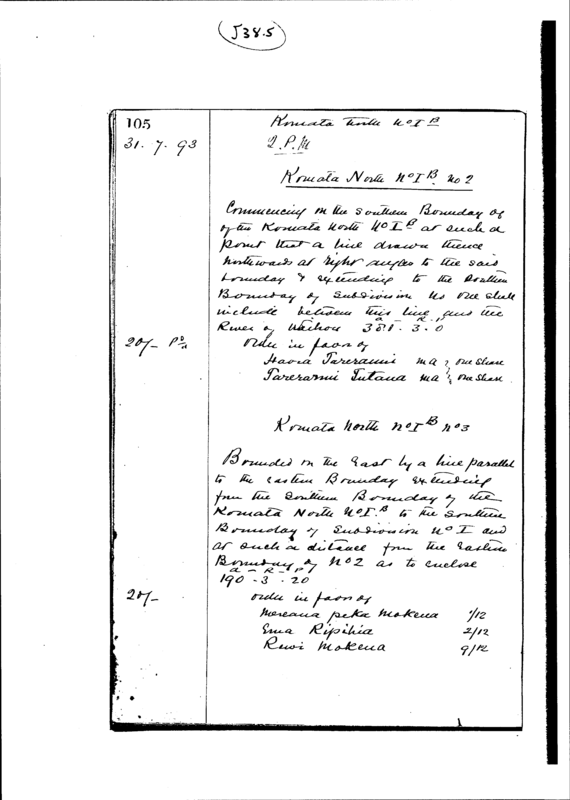 5385
105 Komata North No I B
31. 7. 93 2. P.M
Komata North No I B. No 2
Commencing on the Southern Boundary of
of the Komata North No I B at such a
point that a line drawn thence
northwards at right angles to the said
boundary & extending to the Southern
Boundary of Subdivision No One shall
include between this line and the
River of Waihou a r p 381. 3. 0
20/- Pd Order in favor of
Tareranui ma ; one Share
Tareranui Tutana ma ; one Share
Komata North No I B No 3
Bounded on the East by a line parallel
to the Eastern Boundary extending
from the Southern Boundary of the
Komata North No I. B to the Southern
Boundary of Subdivision No I and
at such a distance from the Eastern
Boundary of No 2 as to enclose
a - R - p 190 - 3 - 20
20/- Order in favor of
Mereana peka Mokena 1/12
Ema Ripihia 2/12
Rewi Mokena 9/12